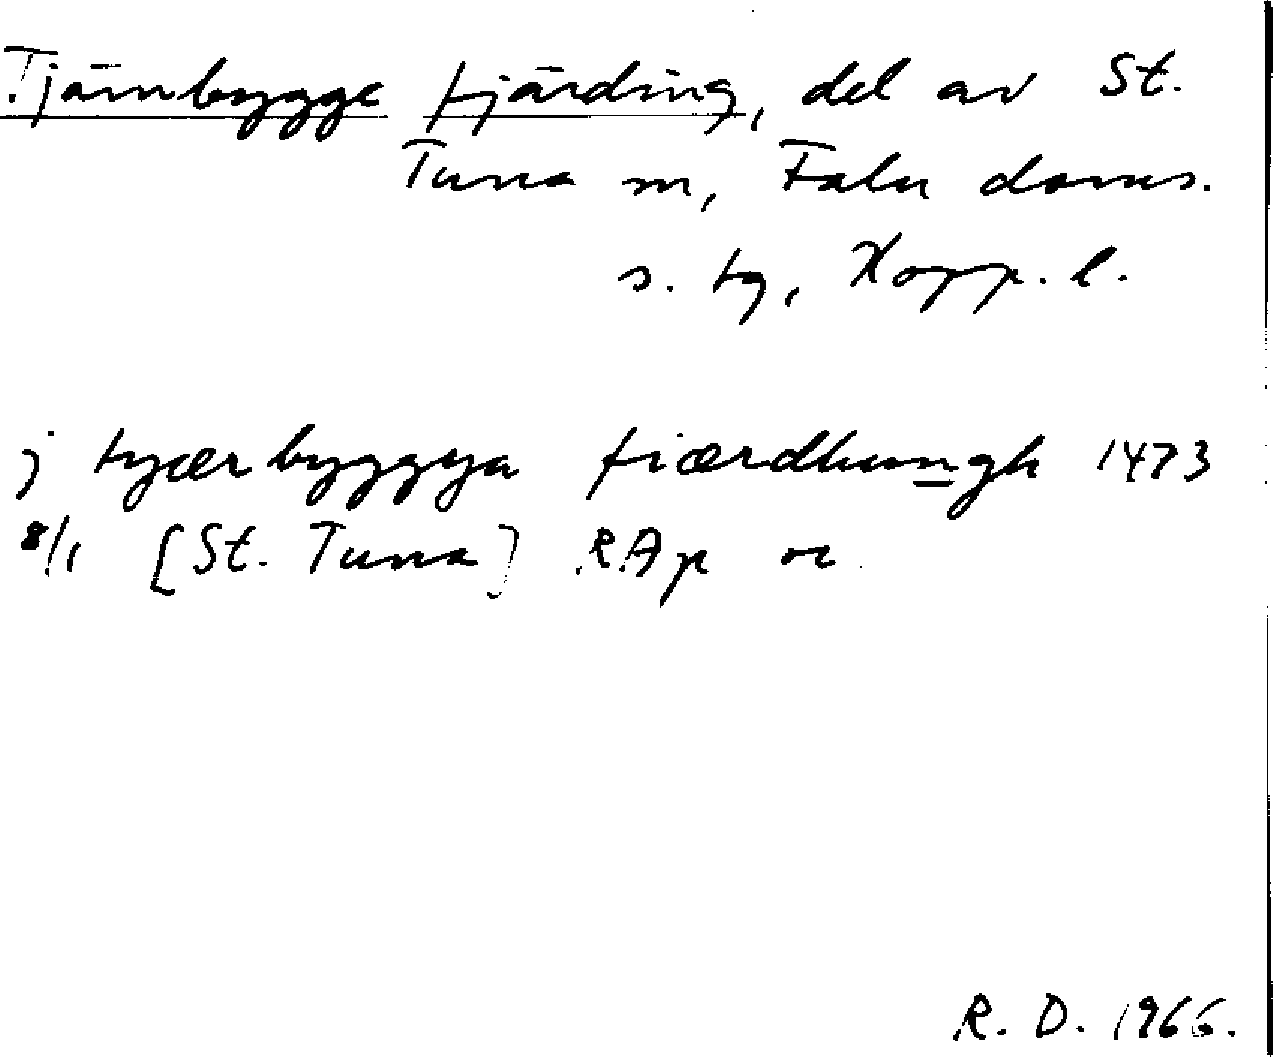 Tjärnbygge fjärding, del av St.
Tuna sn, Falu doms.
s. tg, Kopp. l.
j tyær byggya fiærdhungh 1473
8/1 [St. Tuna] RAp or
R. D. 1966.